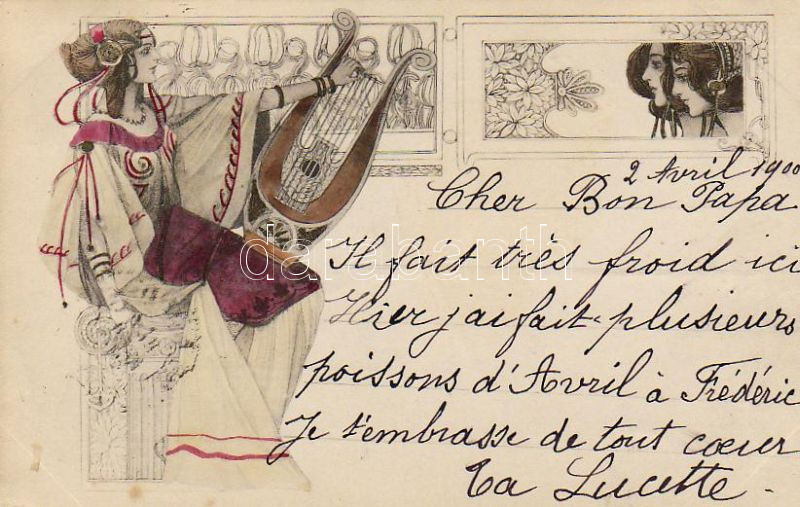 2 Avril 1900
Cher Bon Papa
Il fait très froid ici
Hier j'ai fait plusieurs
poissons d'Avril à Frédéric
Je t'embrasse de tout coeur
Ta Lucette.
darabanth